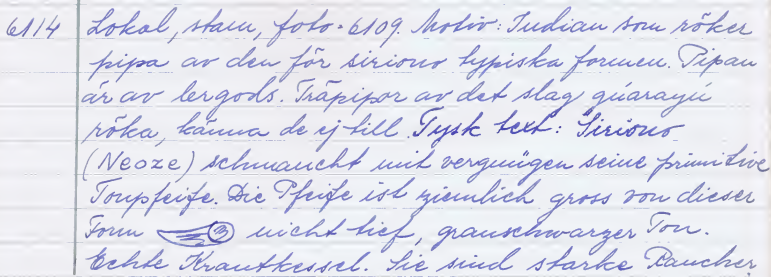 6114 Lokal, stam, foto = 6109. Motiv: Indian som röker
pipa av den för siriono typiska formen. Pipan
är av lergods. Träpipor av det slag guarayú
röka, känna de ej till. Tysk text: Siriono
(Neoze) schmaucht mit vergnügen seine primitive
Tonpfeife. Die Pfeife ist ziemlich gross von dieser
Form nicht tief, grauschwarzer Ton.
Echte Krautkessel. Sie sind starke Raucher